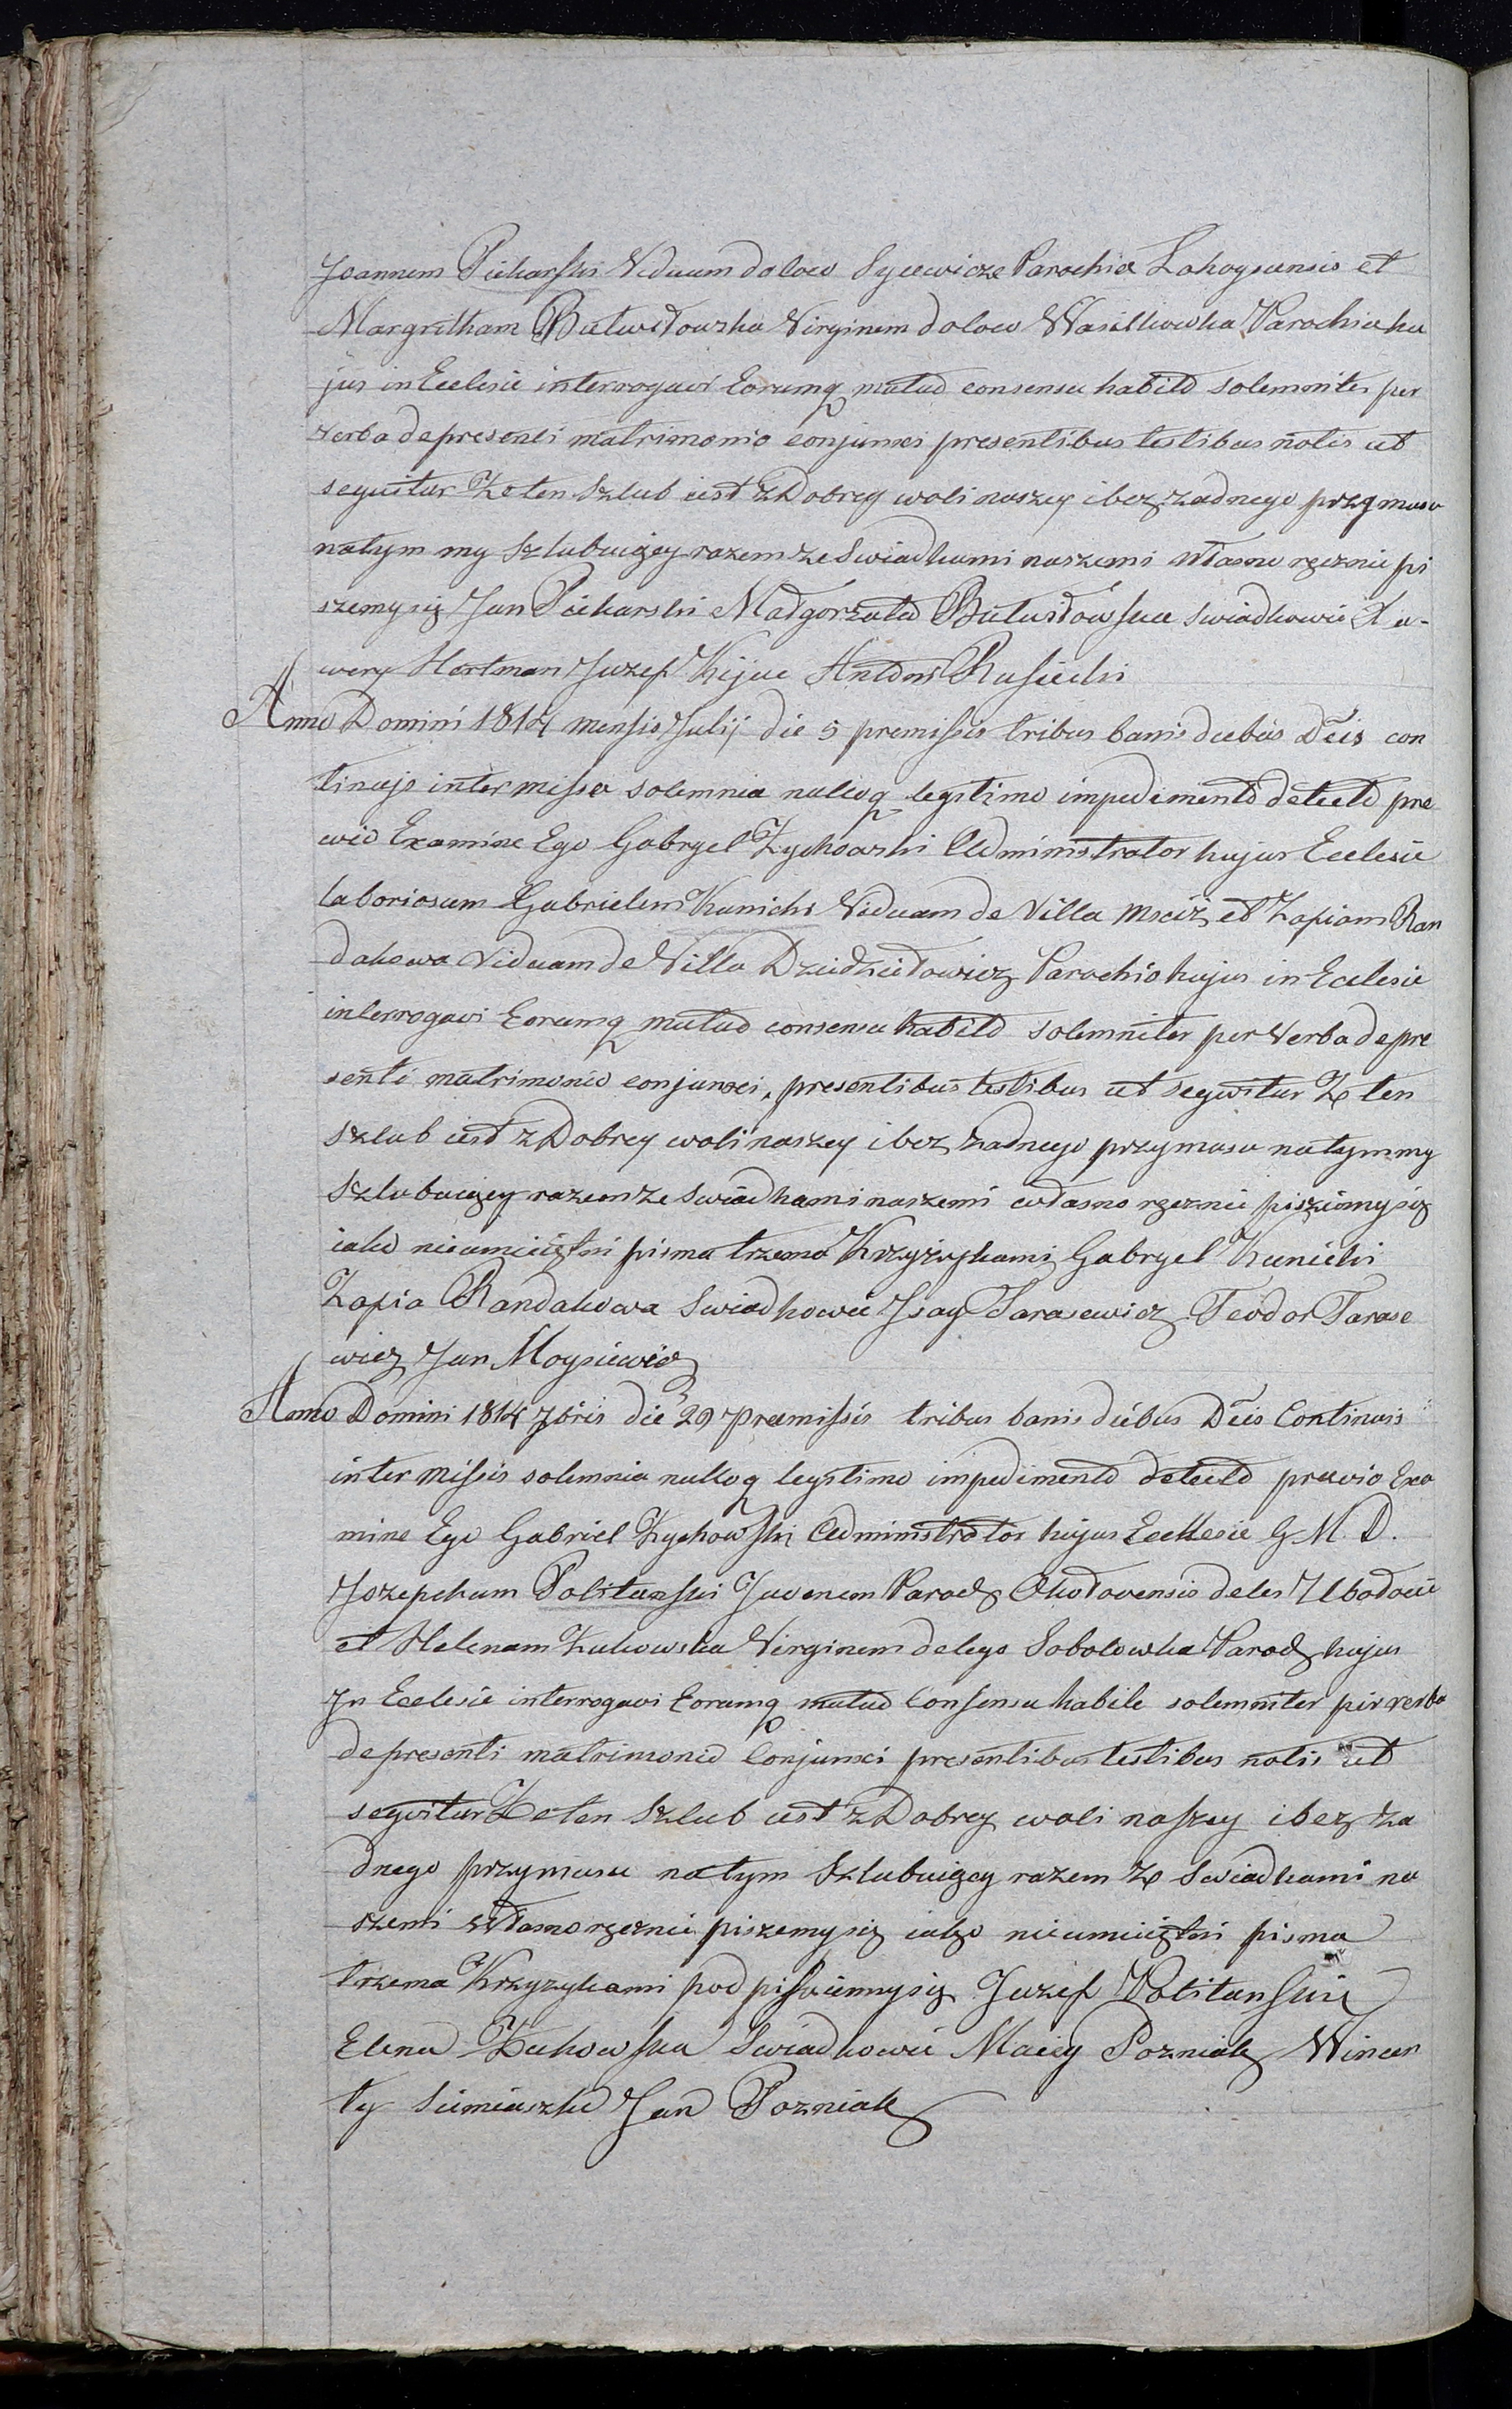 Joannem Piekarski Viduum doloco Sycewicze Parochia Lahoysensis et
Margritham Butwiłowska Virginem doloco Wasilkowka Parochia hu
jus in Ecclesie interrogavi Eorumq mutuo consensu habito solemniter per
verba depresenti matrimonio conjunxi presentibus testibus notis ut
sequitur Że ten Szlub iest z Dobrey woli naszey i bez zadnego przymusu
natym my Szlubuięcy razem ze Swiadkami naszemi własno ręcznie pi
szemy się Jan Piekarski Małgorzata Butwiłowska Swiadkowie Xa-
wery Hertman Juzef Kijuc Antoni Rusiecki
Anno Domini 1814 mensis Julij die 5 premissis tribus banis diebus Dcis con
tinujs inter missa solemnia nulloq legitimo impedimento detecto pre
wio Examine Ego Gabryel Zychowski Administrator hujus Ecclesie
laboriosum Gabrielem Kunicki Viduum de Villa Msciż et Zofiam Ran
dakowa Viduam de Villa Dziedziłowicz Parochio hujus in Ecclesie
interrogavi Eorumq mutuo consensu habito solemniter per Verba depre
senti matrimonio conjunxi, presentibus testibus ut seqwitur Że ten
Szlub iest z Dobrey woli naszey i bez żadnego przymusu natym my
Szlubuięcy razem ze Swiadkami naszemi własno ręcznie piszemy się
iako nieumieiętni pisma trzema Krzyżykami Gabryel Kunicki
Zofia Randakowa Swiadkowie Jsay Tarasewicz Teodor Tarase
wicz Jan Moysiewicz
Anno Domini 1814 7bris die 29 Premissis tribus banis diebus Dcis Continuis
inter missis solemnia nulloq legitimo impedimento detecto prewio Exa
mine Ego Gabriel Zychowski Administrator hujus Ecclesie G. M. D.
Jozephum Politanski Juvenem Paroch Okołovensis deles Ubodocie
et Helenam Zukowska Virginem delogo Sobolowka Paroch hujus
Jn Ecclesie interrogavi Eorumq mutuo Consensu habile solemniter per verba
depresenti matrimonio Conjunxi presentibus testibus notis ut
seqwitur Że ten Szlub iest z Dobrey woli naszey i bez ża
dnego przymusu natym Szlubuięcy razem ze Swiadkami na
szemi własnoręcznie piszemy się iako nieumieiętni pisma
trzema Krzyzykami pod pisuiemy się Juzef Politanski
Elena Zukowska Swiadkowie Maciey Pozniak Wincen
ty Siemiaszko Jan Pozniak